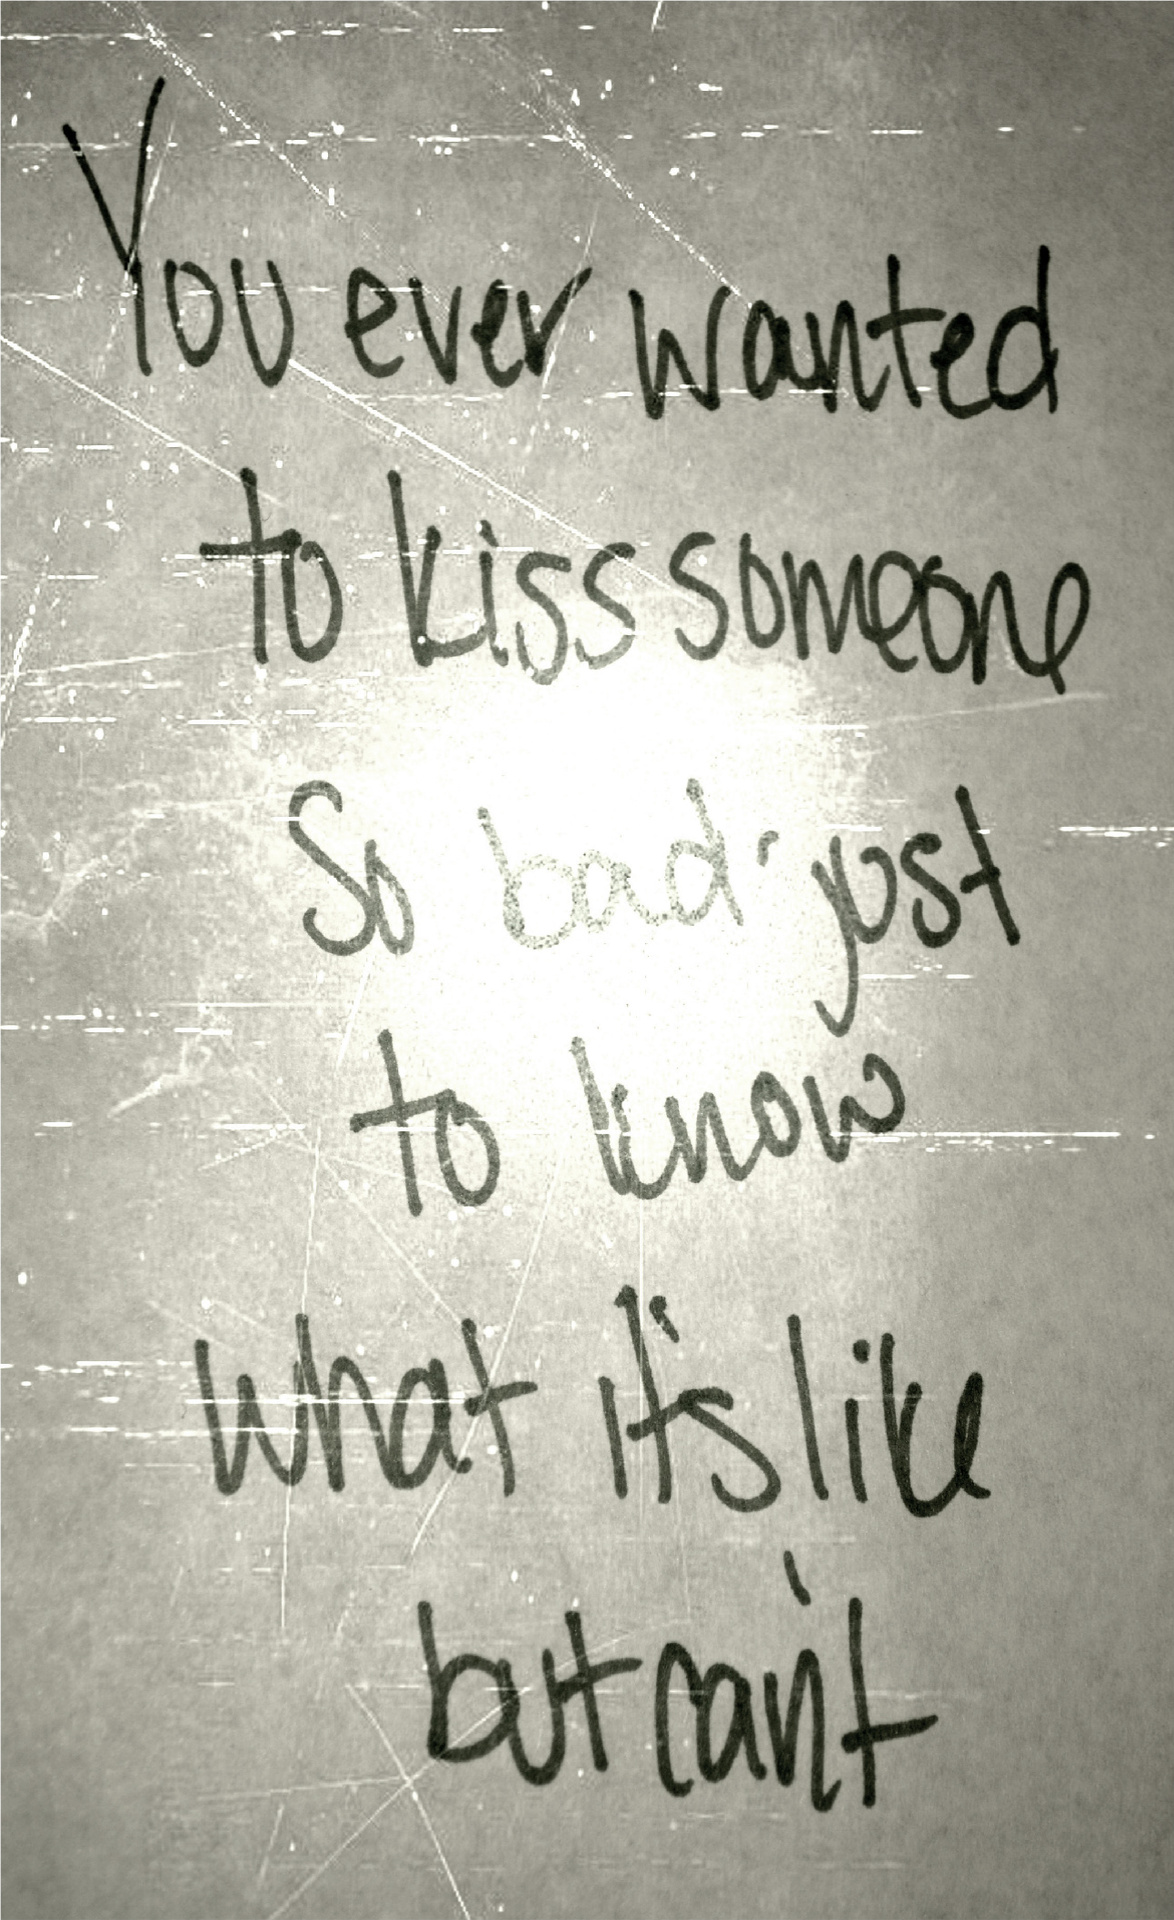 You ever wanted
to kiss someone
So bad. just
to know
what it's like
but can't